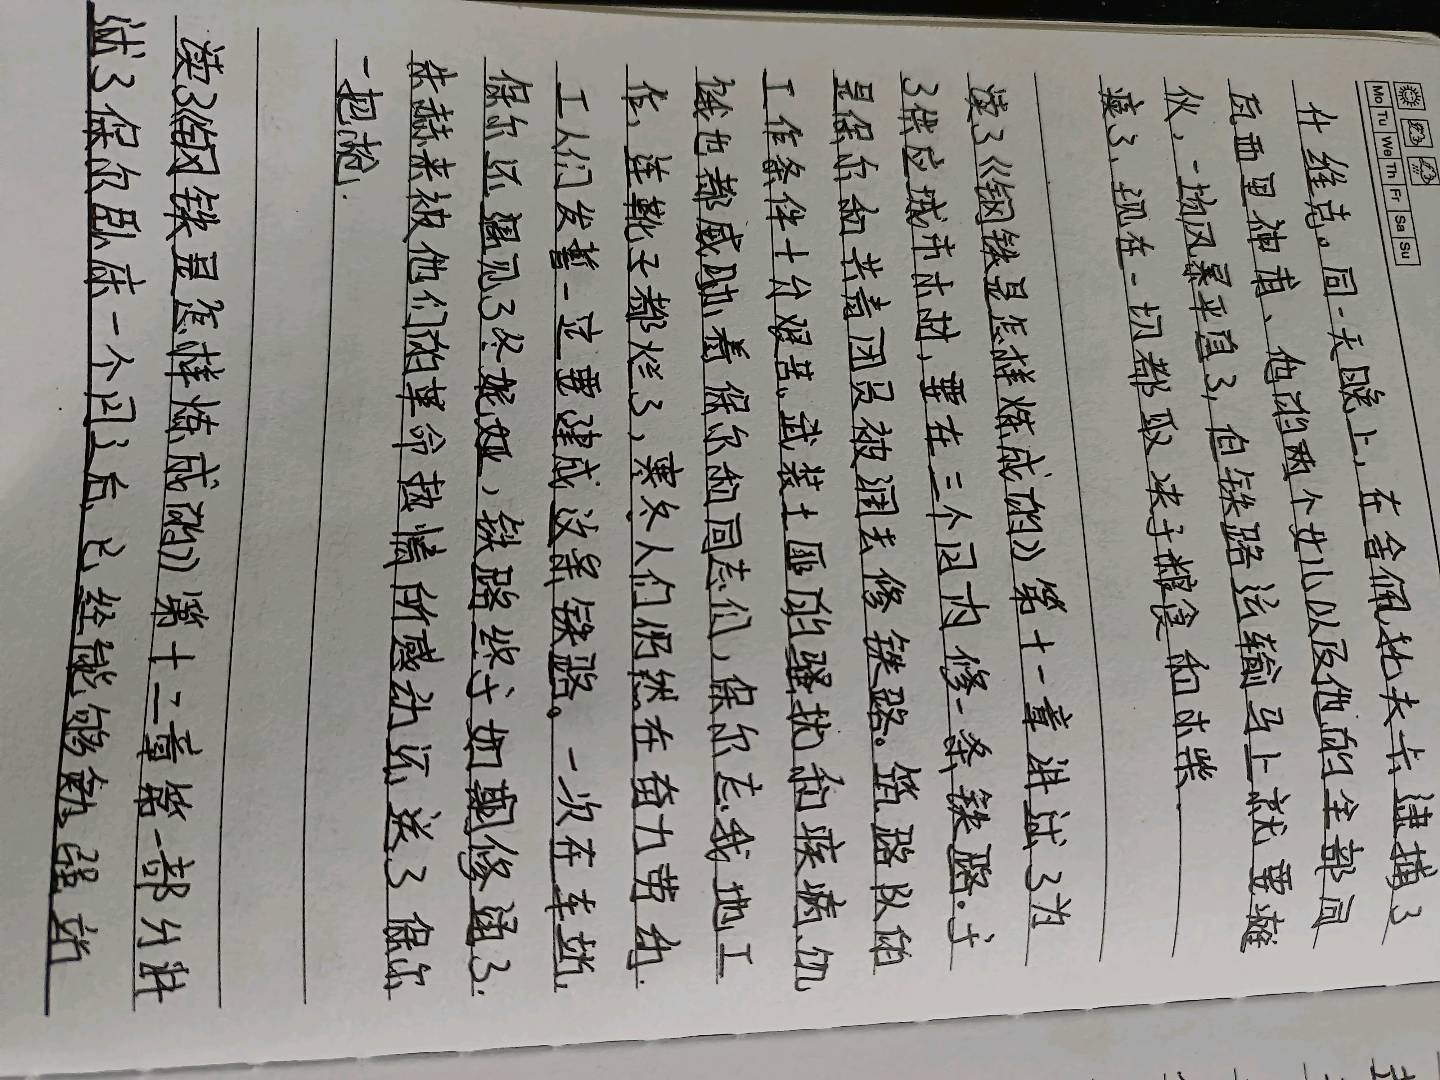 Mo Tu We Th Fr Sa Su
什维克。同一天晚上，在舍佩托夫卡逮捕了
瓦西里神甫、他的两个女儿以及他的全部同
伙，一场风暴平息了，但铁路运输马上就要瘫
痪了，现在一切都取决于粮食和木柴
读了《钢铁是怎样炼成的》第十一章讲试了为
了供应城市木材，要在三个月内修一条铁路。于
是保尔和共青团员被调去修铁路。筑路队的
工作条件十分艰苦，武装土匪的骚扰和疾病饥
饿也都威胁着保尔和同志们，保尔忘我地工
作，连靴子都烂了，寒冬人们仍然在奋力劳动.
工人们发誓一定要建成这条铁路。一次在车站，
保尔还遇见了冬妮娅，铁路终于如期修通了.
朱赫来被他们的革命热情所感动还送了保尔
一把枪.
读了《钢铁是怎样炼成的》第十二章第一部分讲
试了保尔卧床一个月之后已经能够勉强站